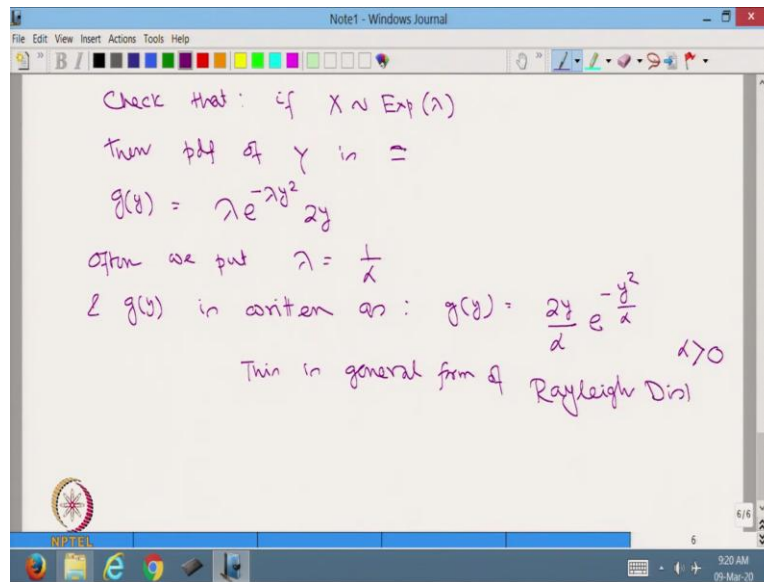 Note1 - Windows Journal
File Edit View Insert Actions Tools Help
Check that: if X ~ Exp(λ)
then pdf of Y is =
g(y) = λe^{-λy²} 2y
Often we put λ = 1/α
& g(y) is written as: g(y) = 2y/α e^{-y²/α} α>0
This is general form of Rayleigh Dist
NPTEL
6/6
6
9:20 AM
09-Mar-20